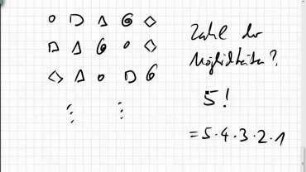 Zahl der
Möglichkeiten?
5!
= 5·4·3·2·1